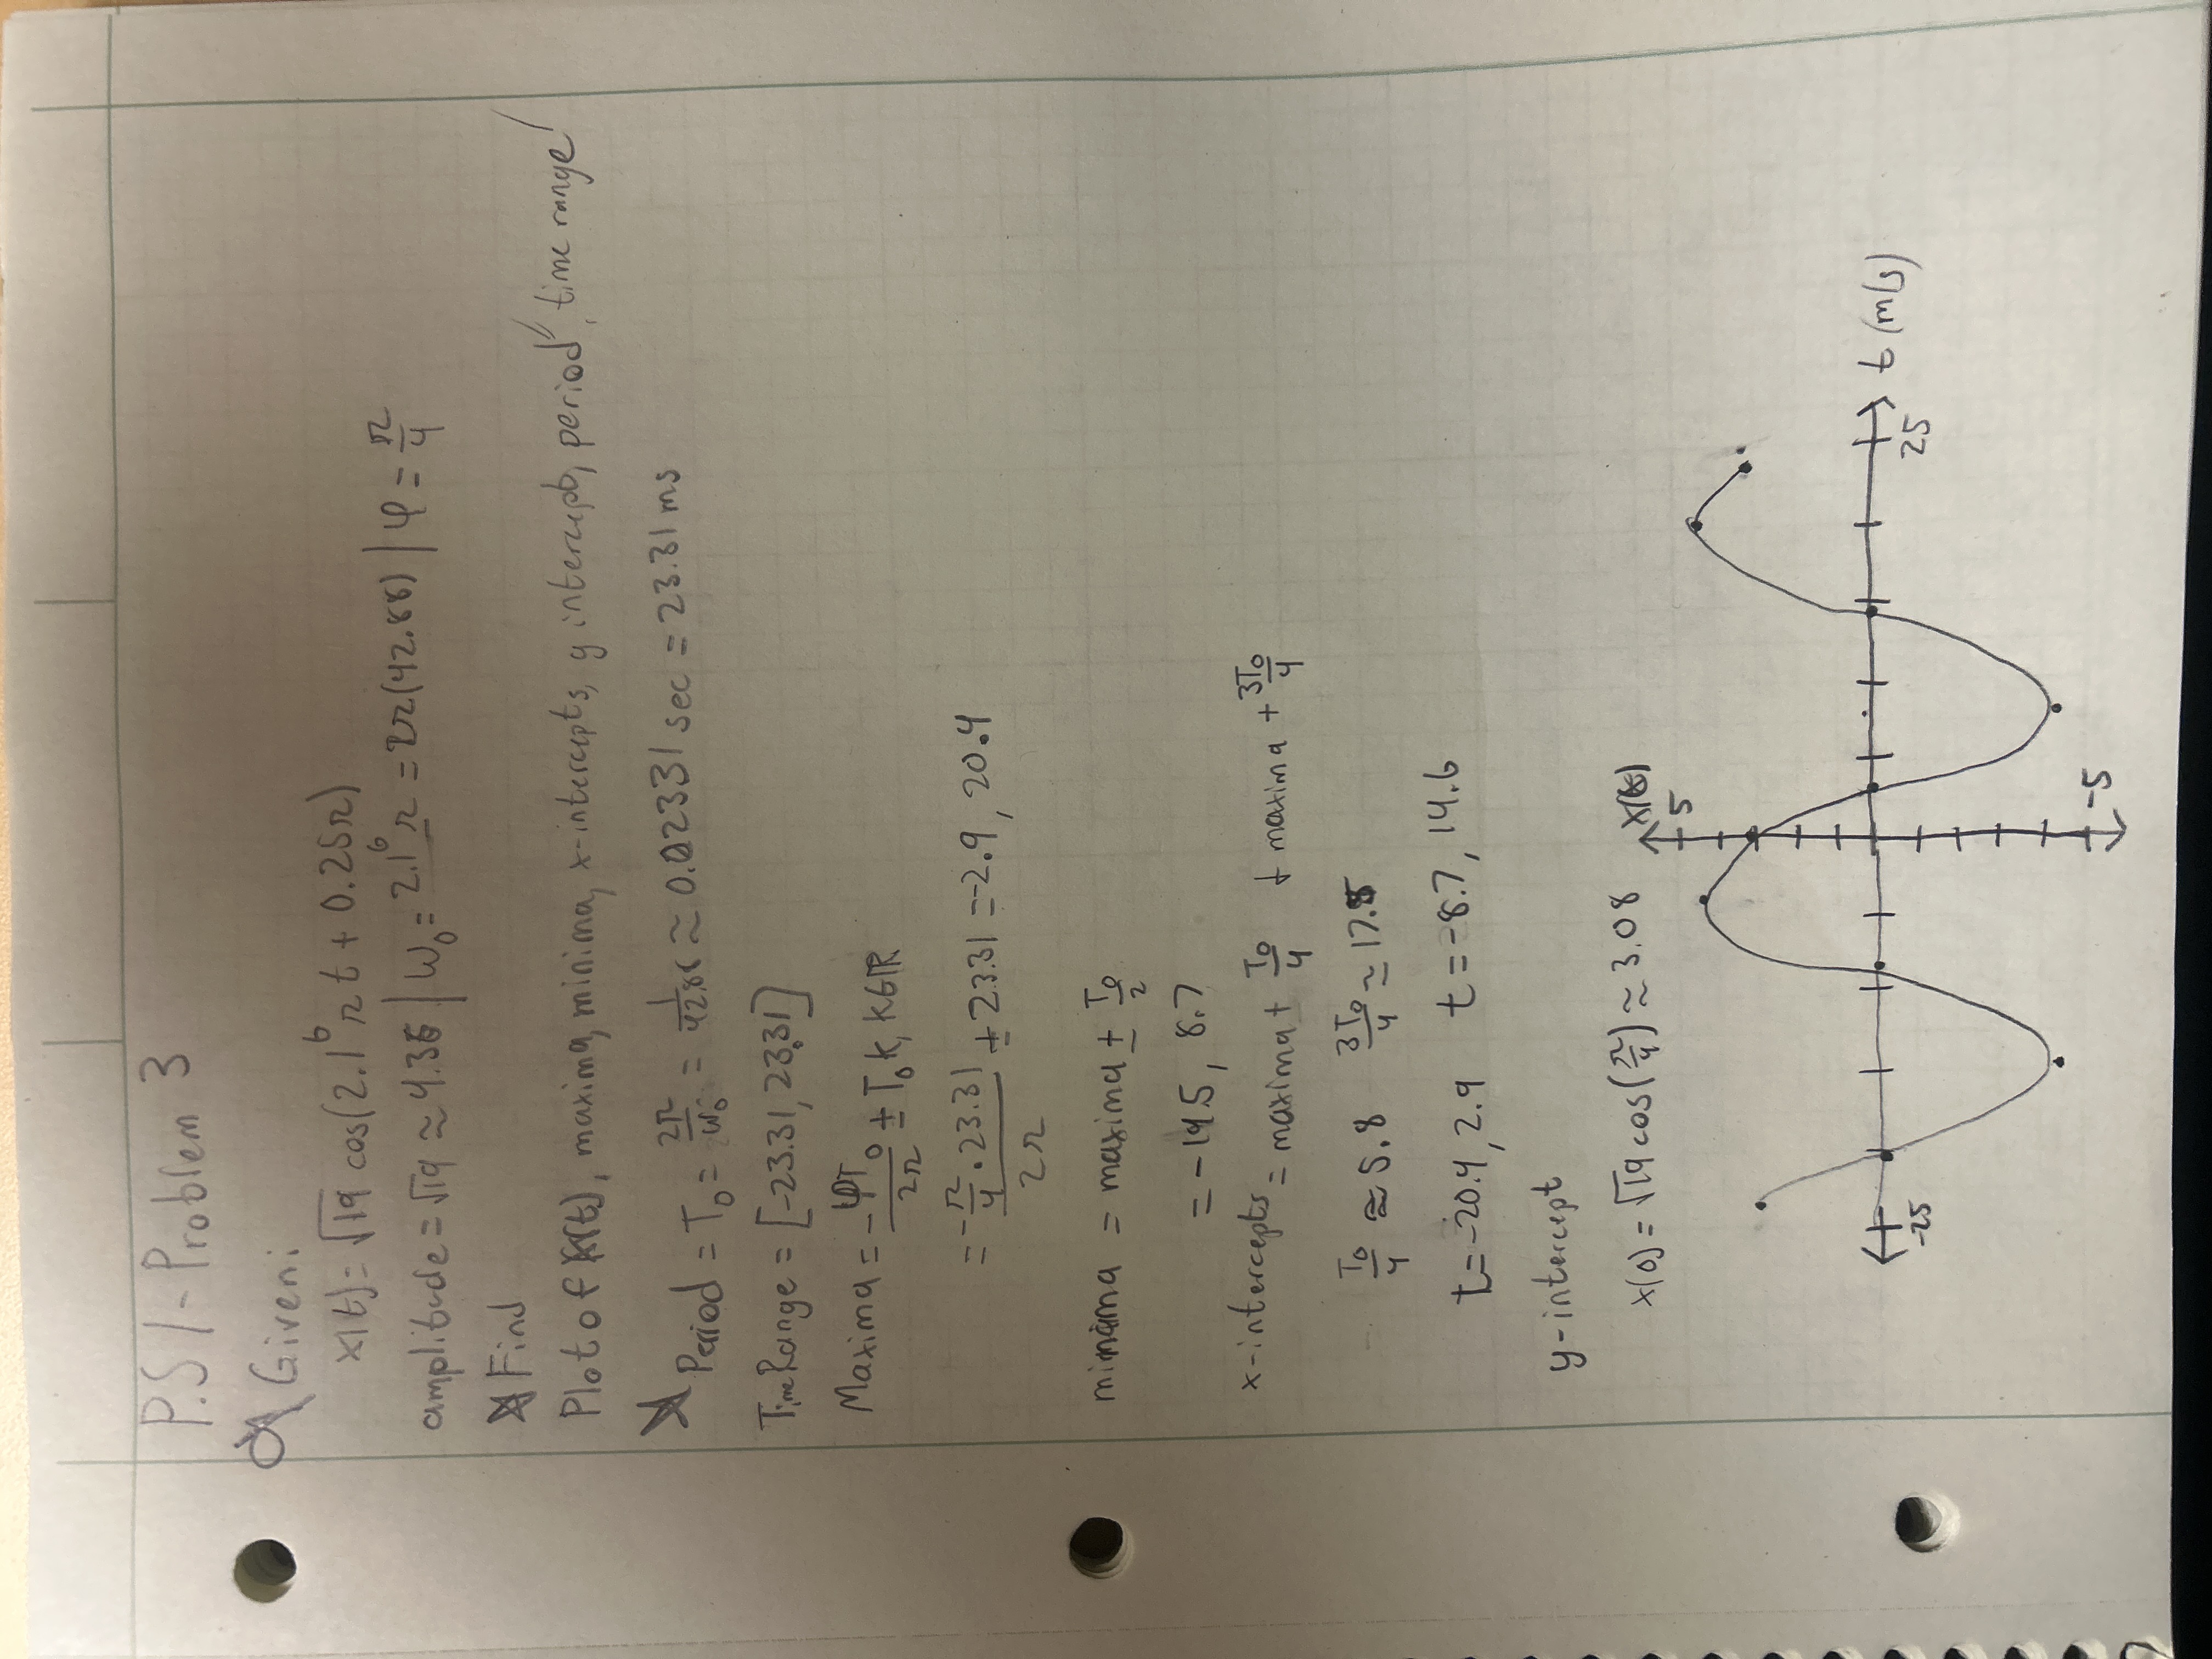 P.S 1 - Problem 3
Given:
x(t) = √19 cos(2.1⁶πt + 0.25π)
amplitude = √19 ≈ 4.36 | ω₀ = 2.1⁶π = 2π(42.88) | φ = π/4
Find
Plot of x(t), maxima, minima, x-intercepts, y intercept, period, time range
Period = T₀ = 2π/ω₀ = 1/42.88 ≈ 0.02331 sec = 23.31 ms
Time Range = [-23.31, 23.31]
Maxima = -φT₀/2π ± T₀k, k∈ℝ
= (-π/4 · 23.31)/2π ± 23.31 = -2.9, 20.4
minima = maxima ± T₀/2
= -14.5, 8.7
x-intercepts = maxima + T₀/4 + maxima + 3T₀/4
T₀/4 ≈ 5.8 3T₀/4 ≈ 17.5
t = -20.4, 2.9 t = -8.7, 14.6
y-intercept
x(0) = √19 cos(π/4) ≈ 3.08
x(t)
5
t (m/s)
-25
25
-5